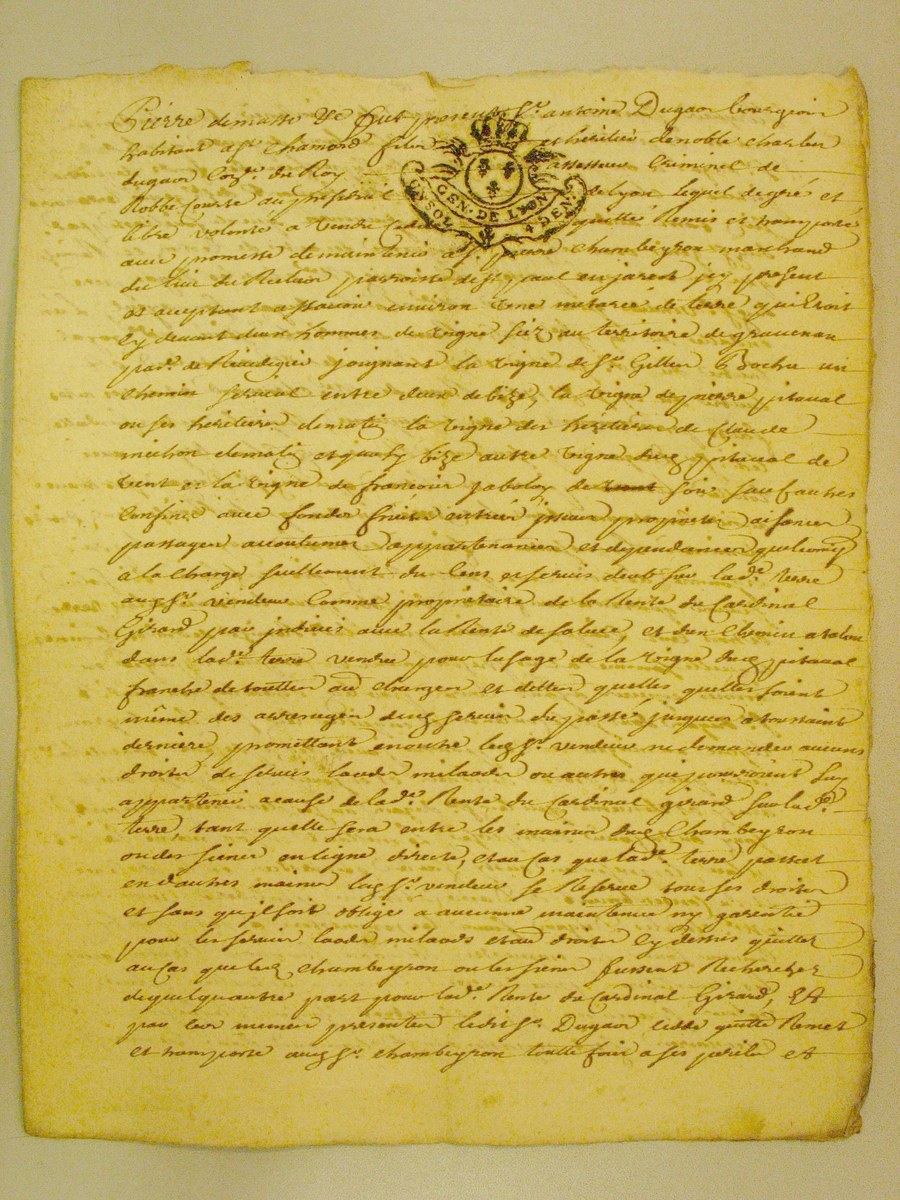 Pierre demasse &c fut present Sr. antoine Dugaor bourgeois
habitant a St. Chamond filz et heritier de noble charles
dugaor Conser. du Roy assesseur Criminel de
Robbe Courte au presidial de Lyon lequel de gres et
libre volonté a vendu Cedé quitté Remis et transporté
GEN. DE LYON
SOL DEN.
avec promesse de maintenir a Sr. pierre Chambeyron marchand
du lieu du Reclus parroisse de St. paul en jarest jcy present
et acceptant assavoir environ une meterée de terre qui Estoit
Cy devant deux hommes de vigne size au territoire de gravenan
parr. de joignant la vigne de Sr. Gillen Bochu un
Chemin serval entre deux de bize, la vigne de pierre pitaval
ou ses heritiers de matin la vigne des heritiers de Claude
michon de matin et quasy bize autre vigne dudt pitaval de
vent et la vigne de francois jaboley de soir sauf autres
Confins avec fondz fruitz entrées issues proprietes aisances
passages accoutumes appartenances et dependances quelconqs
a la Charge seullement du Cens et servis deub sur lade. terre
audt Sr. vendeur Comme proprietaire de la Rente du Cardinal
Girard par jndivis avec la Rente de saleve, et d'un Chemin a talon
dans lade. terre vendue pour lusage de la vigne dudt pitaval
franche de touttes au charges et dettes quelles quelles soient
même des arrerages dudt servis du passé jusques a toussaint
derniere, promettant en outre ledt Sr. vendeur ne demander aucuns
droitz de servis laods milaods ou autres qui pourroient luy
appartenir a cause de lade. Rente du Cardinal girard sur lade.
terre, tant quelle sera entre les mains dudt Chambeyron
ou des siens en ligne directe, et au cas que lade. terre passat
en d'autres mains ledt Sr. vendeur se Reserve tous ses droitz
et sans quil soit obligé a aucunne maintenue ny garentie
pour les servis laods milaods et au droitz Cy dessus quittes
au Cas que ledt Chambeyron ou les siens fussent Recherchez
de quelquautre part pour lade. Rente du Cardinal Girard, Et
par ces mesmes presentes ledit Sr. Dugaor cedde quitte Remet
et transporte audt Sr. Chambeyron toutte fois a ses perilz et